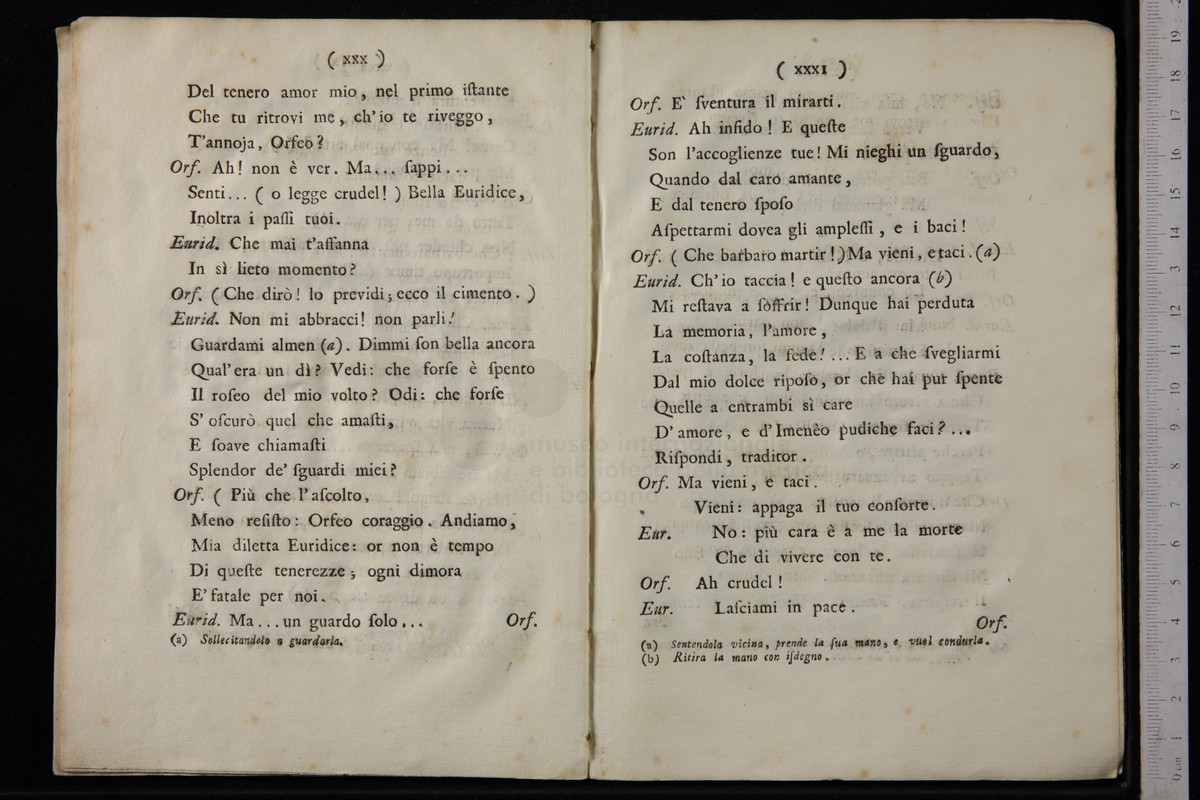 ( XXX )
Del tenero amor mio, nel primo iſtante
Che tu ritrovi me, ch'io te riveggo,
T'annoja, Orfeo?
Orf. Ah! non è ver. Ma... ſappi...
Senti... ( o legge crudel! ) Bella Euridice,
Inoltra i paſſi tuoi.
Eurid. Che mai t'affanna
In sì lieto momento?
Orf. (Che dirò! lo previdi; ecco il cimento. )
Eurid. Non mi abbracci! non parli!
Guardami almen (a). Dimmi ſon bella ancora
Qual'era un dì? Vedi: che forſe è ſpento
Il roſeo del mio volto? Odi: che forſe
S'oſcurò quel che amaſti,
E ſoave chiamaſti
Splendor de' ſguardi miei?
Orf. ( Più che l'aſcolto,
Meno reſiſto: Orfeo coraggio. Andiamo,
Mia diletta Euridice: or non è tempo
Di queſte tenerezze; ogni dimora
E' fatale per noi.
Eurid. Ma... un guardo ſolo... Orf.
(a) Sollecitandolo a guardarla.
( XXXI )
Orf. E` ſventura il mirarti.
Eurid. Ah infido! E queſte
Son l'accoglienze tue! Mi nieghi un ſguardo,
Quando dal caro amante,
E dal tenero ſpoſo
Aſpettarmi dovea gli ampleſſi, e i baci!
Orf. ( Che barbaro martir!) Ma vieni, e taci. (a)
Eurid. Ch'io taccia! e queſto ancora (b)
Mi reſtava a ſoffrir! Dunque hai perduta
La memoria, l'amore,
La coſtanza, la fede!... E a che ſvegliarmi
Dal mio dolce ripoſo, or che hai pur ſpente
Quelle a entrambi sì care
D'amore, e d'Imenèo pudiche faci?...
Riſpondi, traditor.
Orf. Ma vieni, e taci.
Vieni: appaga il tuo conſorte.
Eur. No: più cara è a me la morte
Che di vivere con te.
Orf. Ah crudel!
Eur. Laſciami in pace.
Orf.
(a) Sentendola vicina, prende la ſua mano, e vuol condurla.
(b) Ritira la mano con iſdegno.
museo internazionale
e biblioteca della musica
di bologna